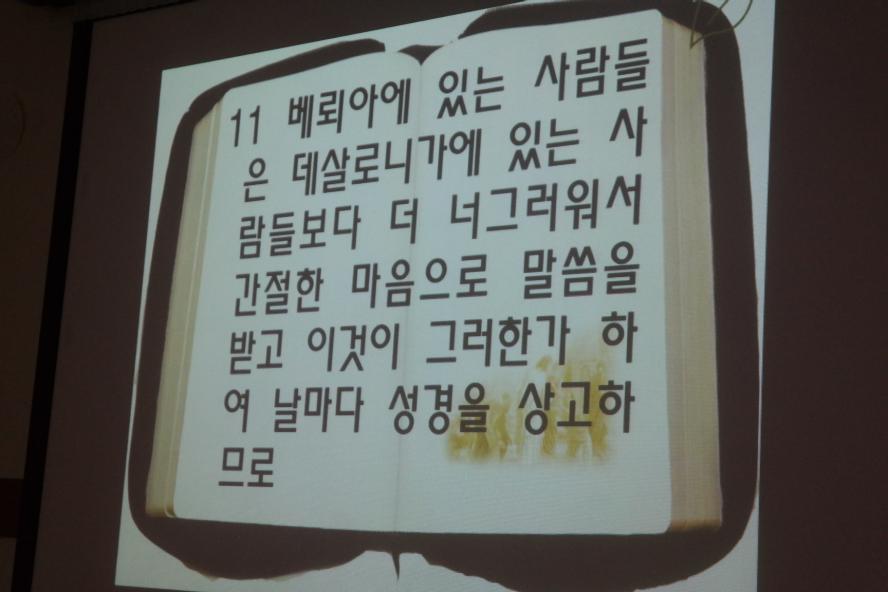 11 베뢰아에 있는 사람들
은 데살로니가에 있는 사
람들보다 더 너그러워서
간절한 마음으로 말씀을
받고 이것이 그러한가 하
여 날마다 성경을 상고하
므로